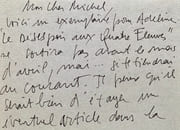 Mon cher Michel,
Voici un exemplaire pour Adeline.
"Le Désespoir aux Quatre Fleuves"
ne sortira pas avant le mois
d'avril, mais... je tiendrai
au courant. Je pense qu'il
serait bien d'étayer un
éventuel article dans la